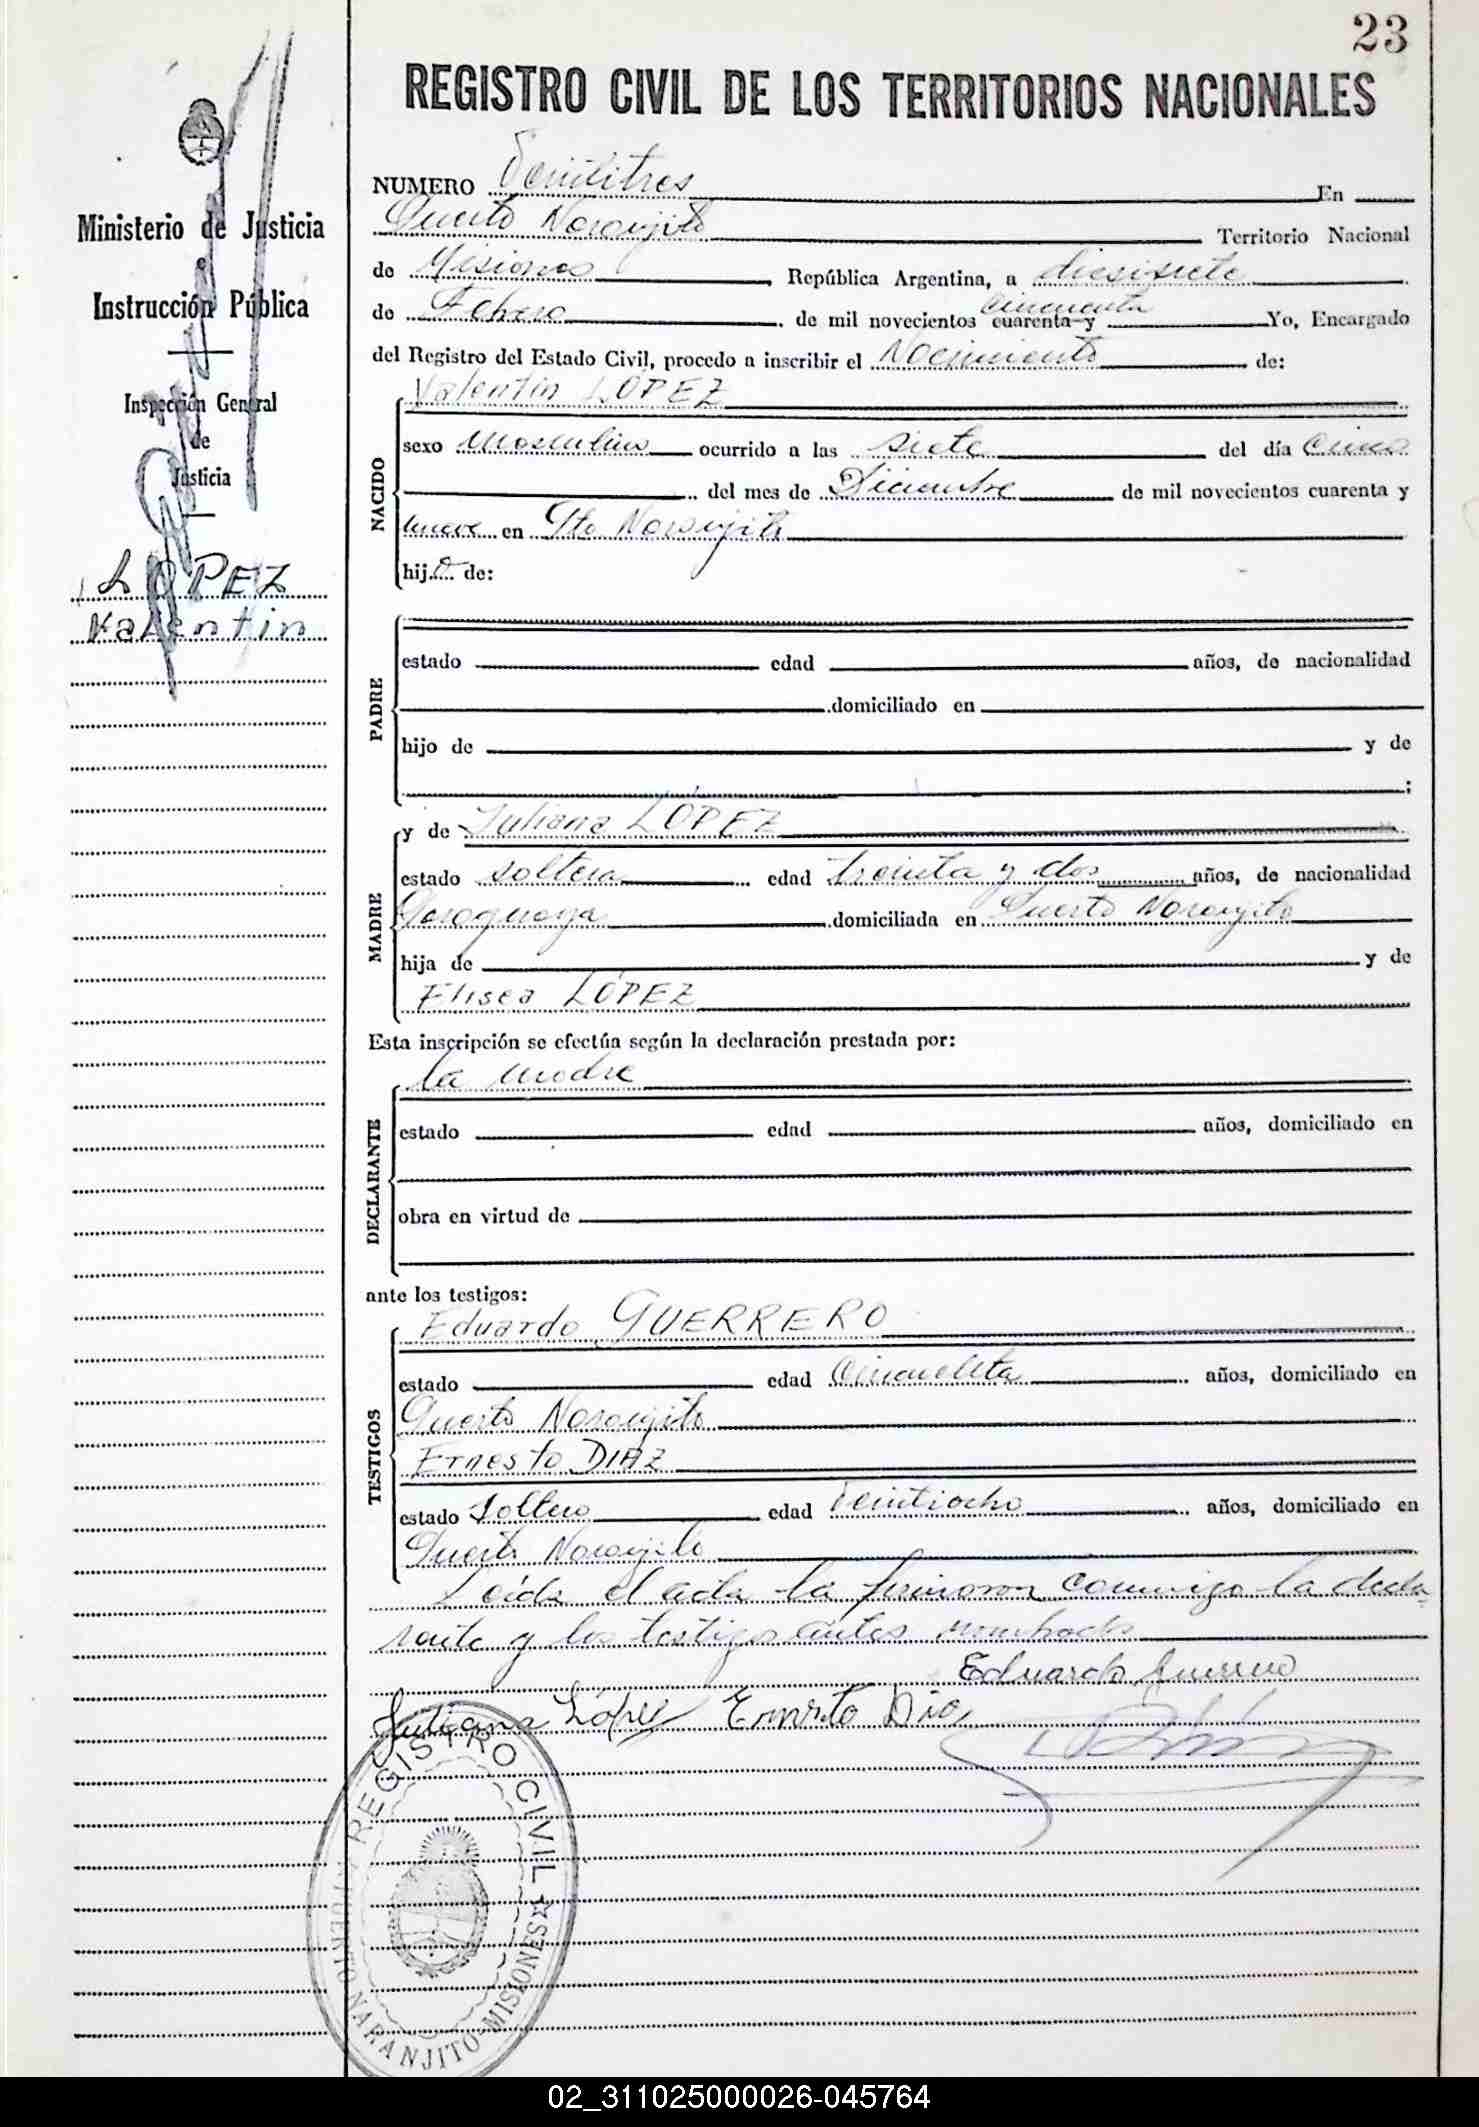 23
REGISTRO CIVIL DE LOS TERRITORIOS NACIONALES
NUMERO Veintitres En
Puerto Naranjito Territorio Nacional
de Misiones República Argentina, a diesisiete
de Febrero de mil novecientos cuarenta y cincuenta Yo, Encargado
del Registro del Estado Civil, procedo a inscribir el Nacimiento de:
Valentin LÓPEZ
NACIDO
sexo Masculino ocurrido a las siete del día Cinco
del mes de Diciembre de mil novecientos cuarenta y
nueve en Pto Naranjito
hijo de:
PADRE
estado edad años, de nacionalidad
domiciliado en
hijo de y de
;
MADRE
y de Juliana LÓPEZ
estado soltera edad treinta y dos años, de nacionalidad
Paraguaya domiciliada en Puerto Naranjito
hija de y de
Elisea LÓPEZ
Esta inscripción se efectúa según la declaración prestada por:
la madre
DECLARANTE
estado edad años, domiciliado en
obra en virtud de
ante los testigos:
TESTIGOS
Eduardo GUERRERO
estado edad cincuenta años, domiciliado en
Puerto Naranjito
Ernesto DIAZ
estado Soltero edad Veintiocho años, domiciliado en
Puerto Naranjito
Leida el acta la firmaron conmigo la decla
rante y los testigos antes nombrados
Eduardo Guerrero
Juliana López Ernesto Dia
Ministerio de Justicia
e
Instrucción Pública
Inspección General
de
Justicia
LOPEZ
Valentin
REGISTRO CIVIL
PUERTO NARANJITO-MISIONES
02_311025000026-045764